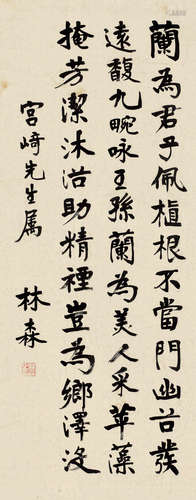 蘭為君子佩植根不當門幽谷發
遠馥九畹咏王孫蘭為美人采苹藻
掩芳潔沐浴助精禋豈為鄉澤沒
宮崎先生属
林森